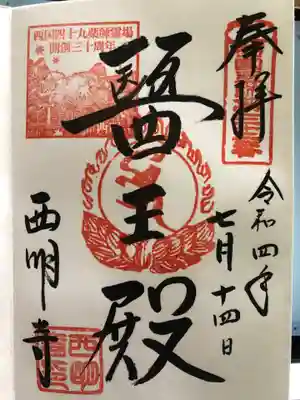 奉拝
令和四年
七月十四日
醫王殿
西国四十九薬師霊場
開創三十周年
西明寺